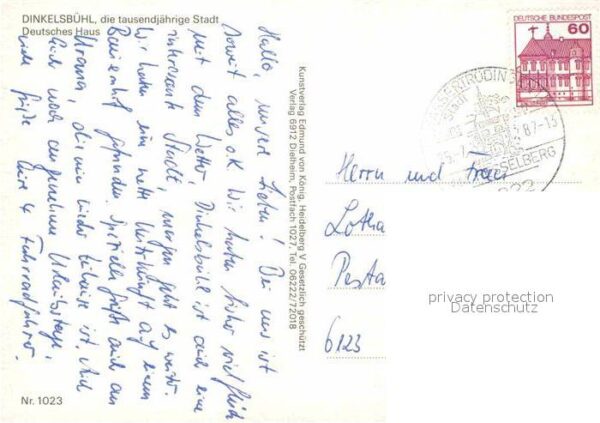 DINKELSBÜHL, die tausendjährige Stadt
Deutsches Haus
Hallo, unsere Lieben! Bei uns ist
soweit alles o.k. Wir hatten bisher viel Glück
mit dem Wetter, Dinkelsbühl ist auch eine
interessante Stadt, morgen geht es weiter.
Wir haben eine nette Unterkunft auf einem
Bauernhof gefunden. Spezielle Grüße auch an
Urgroma, die nun wieder zuhause ist. Auch
euch noch angenehme Urlaubstage,
viele Grüße
eure 4 Fahrradfahrer.
Nr. 1023
Kunstverlag Edmund von König, Heidelberg V Gesetzlich geschützt
Verlag 6912 Dielheim, Postfach 1027, Tel. 06222/72018
DEUTSCHE BUNDESPOST
60
WASSERTRÜDINGEN
Stadt
87-15
HESSELBERG
Herrn und Frau
Lotha
Pesta
6123
privacy protection
Datenschutz